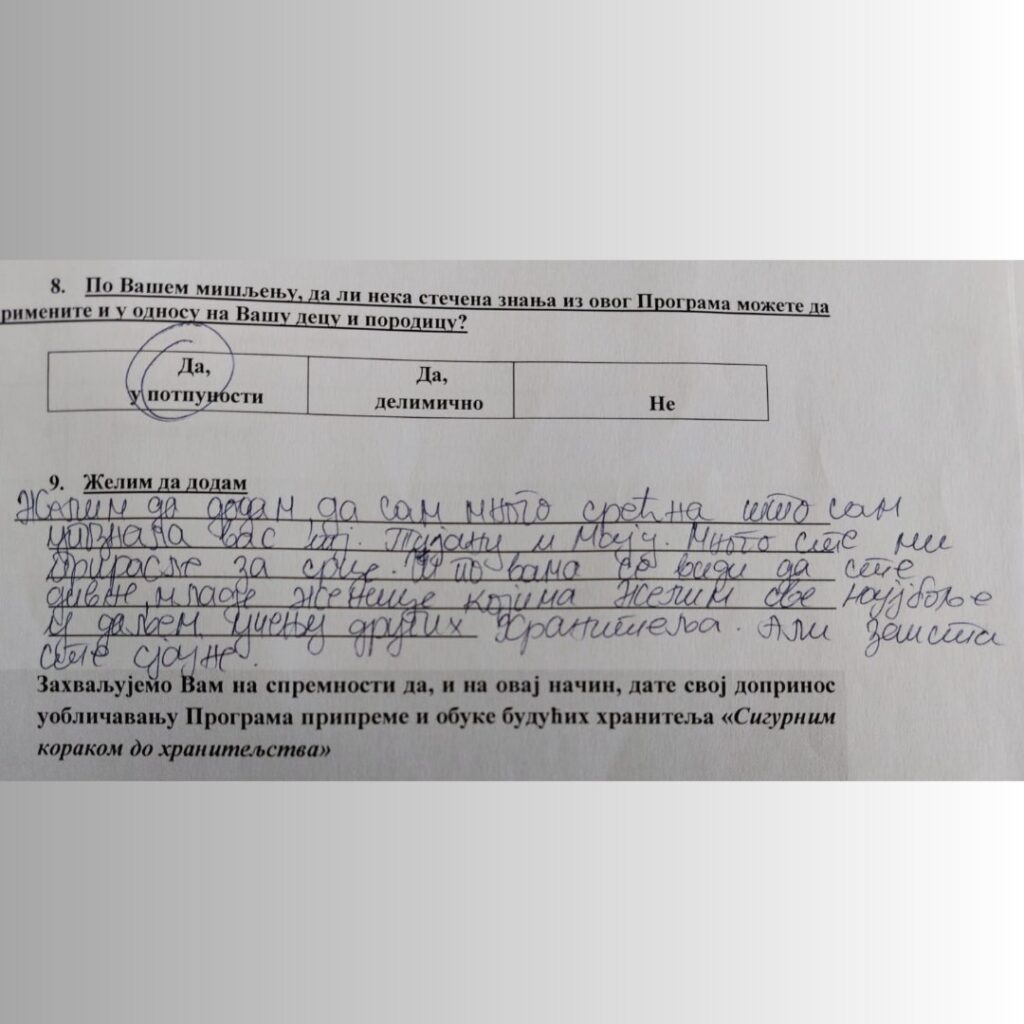 8. По Вашем мишљењу, да ли нека стечена знања из овог Програма можете да
римените и у односу на Вашу децу и породицу?
Да,
у потпуности
Да,
делимично
Не
9. Желим да додам
Желим да додам, да сам много срећна што сам
упознала вас тј. и Мају. Много сте ми
прирасле за срце. И по вама се види да сте
дивне, младе женице којима желим све најбоље
у даљем учењу других Хранитеља. Али заиста
сте сјајне.
Захваљујемо Вам на спремности да, и на овај начин, дате свој допринос
уобличавању Програма припреме и обуке будућих хранитеља «Сигурним
кораком до хранитељства»